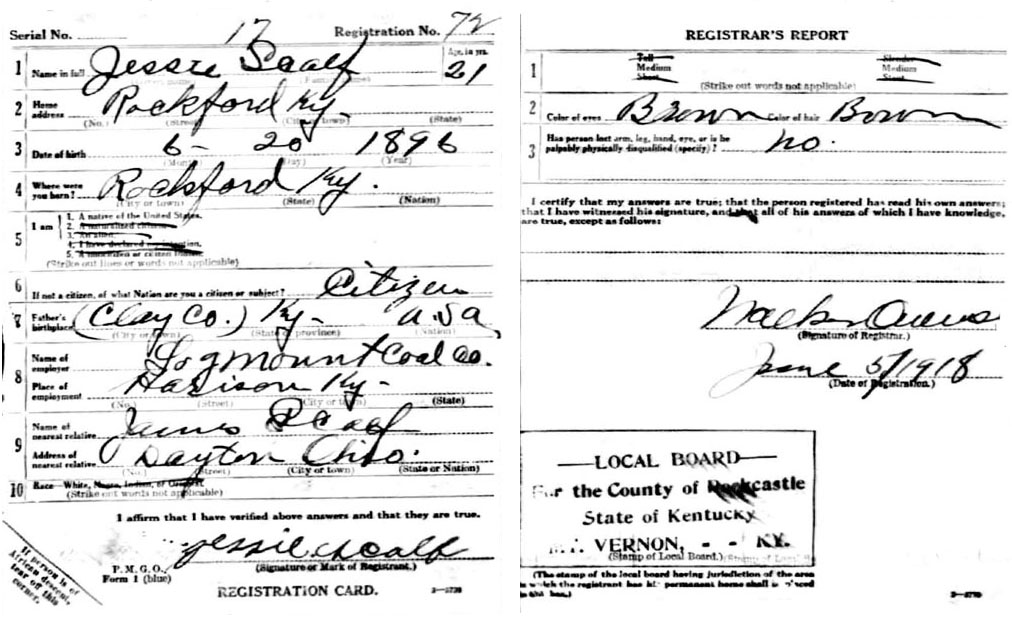 Serial No. 17 Registration No. 72
1 Name in full Jessie Scalf Age, in yrs. 21
2 Home address Rockford Ky
(No.) (Street) (City or town) (State)
3 Date of birth 6- 20 1896
(Month) (Day) (Year)
4 Where were you born? Rockford Ky.
(City or town) (State) (Nation)
5 I am
1. A native of the United States.
2. A naturalized citizen.
3. An alien.
4. I have declared my intention.
5. A noncitizen or citizen Indian.
(Strike out lines or words not applicable)
6 If not a citizen, of what Nation are you a citizen or subject? Citizen
7 Father's birthplace (Clay Co.) Ky- U.S.a
(City or town) (State or province) (Nation)
8 Name of employer Logmount Coal Co.
Place of employment Harison Ky-
(No.) (Street) (City or town) (State)
9 Name of nearest relative James Scalf
Address of nearest relative Dayton Ohio.
(No.) (Street) (City or town) (State or Nation)
10 Race—White, Negro, Indian, or Oriental.
(Strike out words not applicable)
I affirm that I have verified above answers and that they are true.
Jessie Scalf
(Signature or Mark of Registrant.)
P. M. G. O.
Form 1 (blue)
REGISTRATION CARD.
If person is of African descent, tear off this corner.
REGISTRAR'S REPORT
1 Tall Medium Short Slender Medium Stout
(Strike out words not applicable)
2 Color of eyes Brown Color of hair Brown
3 Has person lost arm, leg, hand, eye, or is he palpably physically disqualified (specify)? no.
I certify that my answers are true; that the person registered has read his own answers;
that I have witnessed his signature, and that all of his answers of which I have knowledge,
are true, except as follows:
Owens
(Signature of Registrar.)
June 5/1918
(Date of Registration.)
LOCAL BOARD
For the County of Rockcastle
State of Kentucky
MT. VERNON, - - KY.
(Stamp of Local Board.)
(The stamp of the local board having jurisdiction of the area
in which the registrant has his permanent home shall be placed
in this box.)